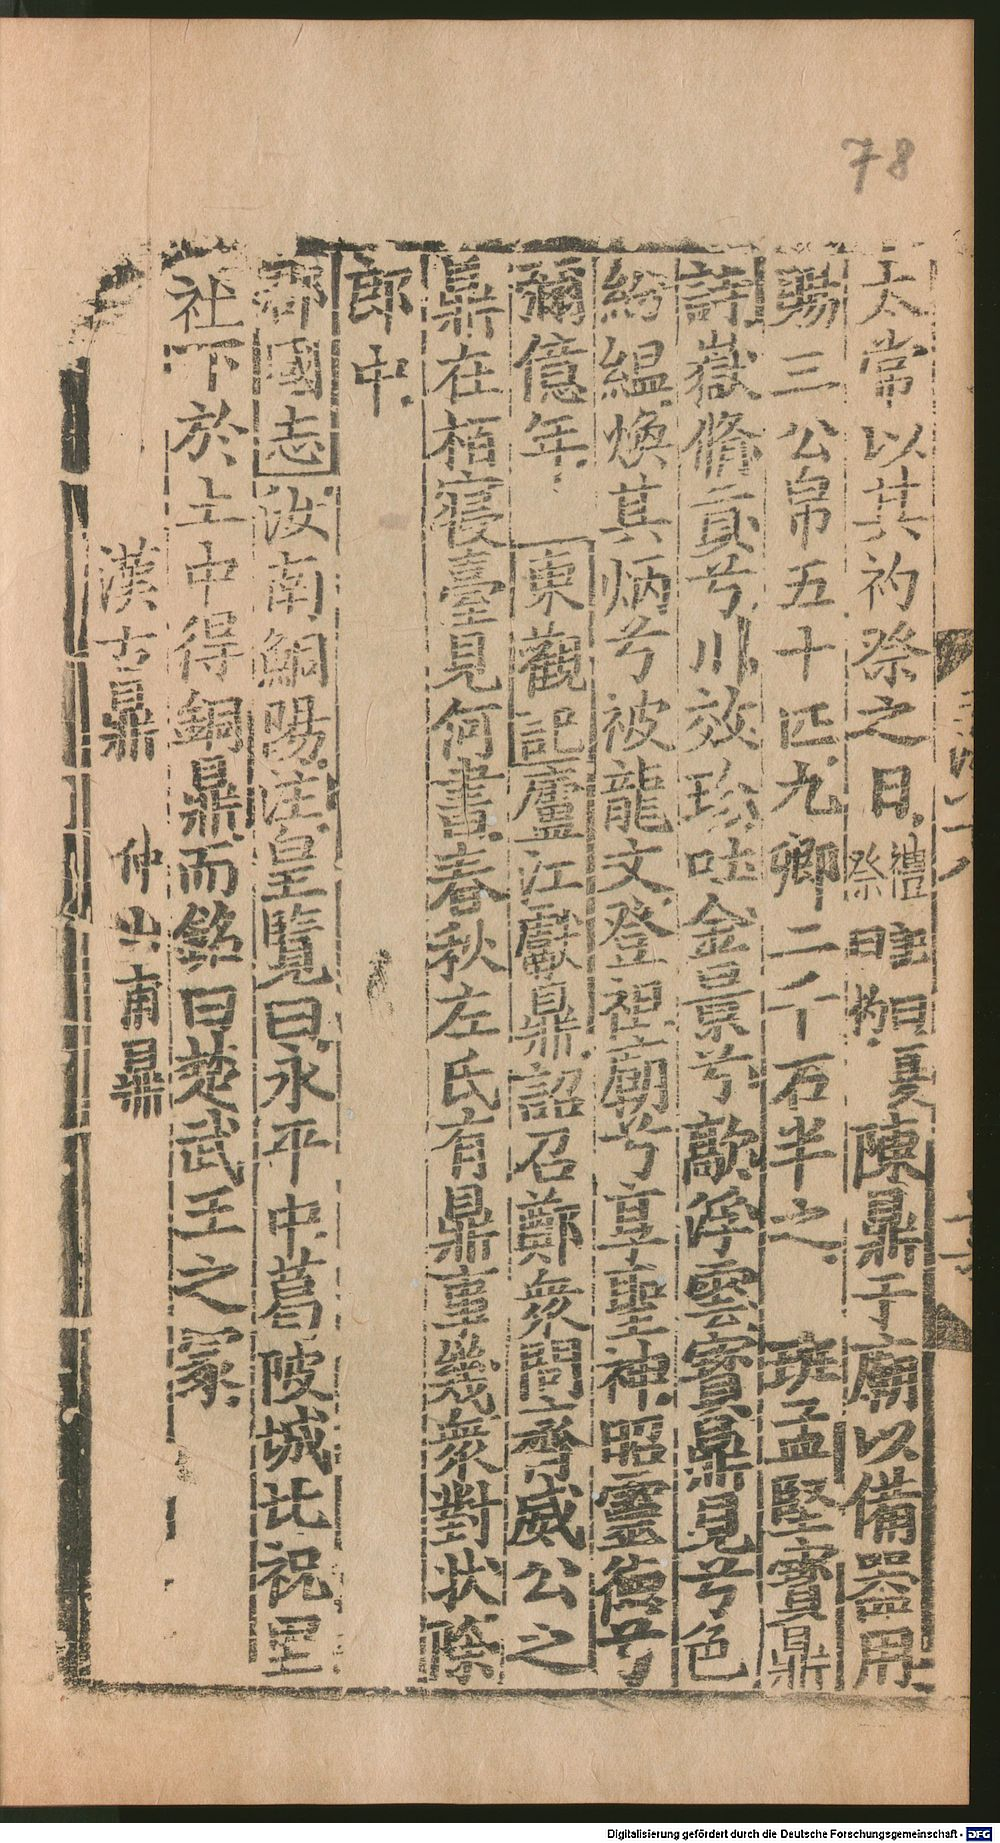 78
太常以其礿祭之日禮記曰夏祭曰礿陳鼎于廟以備器用
賜三公帛五十匹九卿二千石半之　班孟堅寶鼎
詩嶽脩貢兮川效珍吐金景兮歊浮雲寶鼎見兮色
紛緼煥其炳兮被龍文登祖廟兮享聖神昭靈德兮
彌億年　東觀記廬江獻鼎詔召鄭衆問齊威公之
鼎在栢寢臺見何書春秋左氏有鼎事幾衆對狀除
郎中
郡國志汝南鮦陽注皇覽曰永平中葛陂城北祝里
社下於土中得銅鼎而銘曰楚武王之冢
漢古鼎　仲山甫鼎
Digitalisierung gefördert durch die Deutsche Forschungsgemeinschaft - DFG